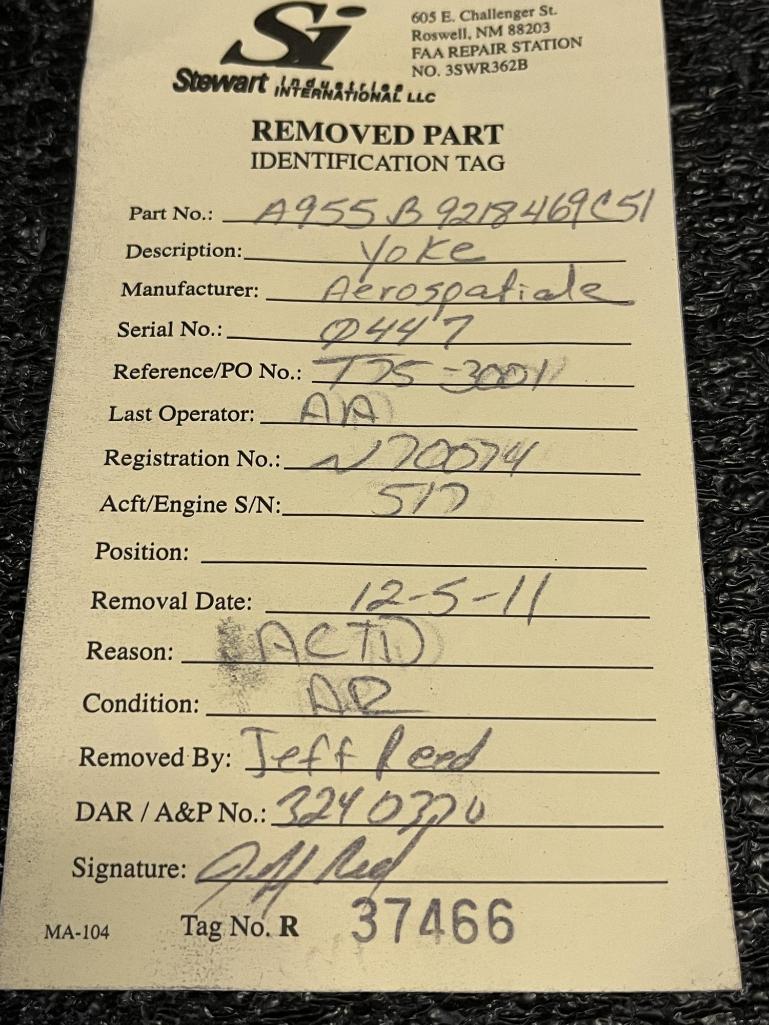 Si
605 E. Challenger St.
Roswell, NM 88203
FAA REPAIR STATION
NO. 3SWR362B
Stewart Industries
INTERNATIONAL LLC
REMOVED PART
IDENTIFICATION TAG
Part No.: A955B9218469C51
Description: Yoke
Manufacturer: Aerospatiale
Serial No.: 0447
Reference/PO No.: T75-3001
Last Operator: AA
Registration No.: N70074
Acft/Engine S/N: 517
Position:
Removal Date: 12-5-11
Reason: ACTD
Condition: AR
Removed By: Jeff Reed
DAR / A&P No.: 3240320
Signature: Jeff Reed
MA-104 Tag No. R 37466